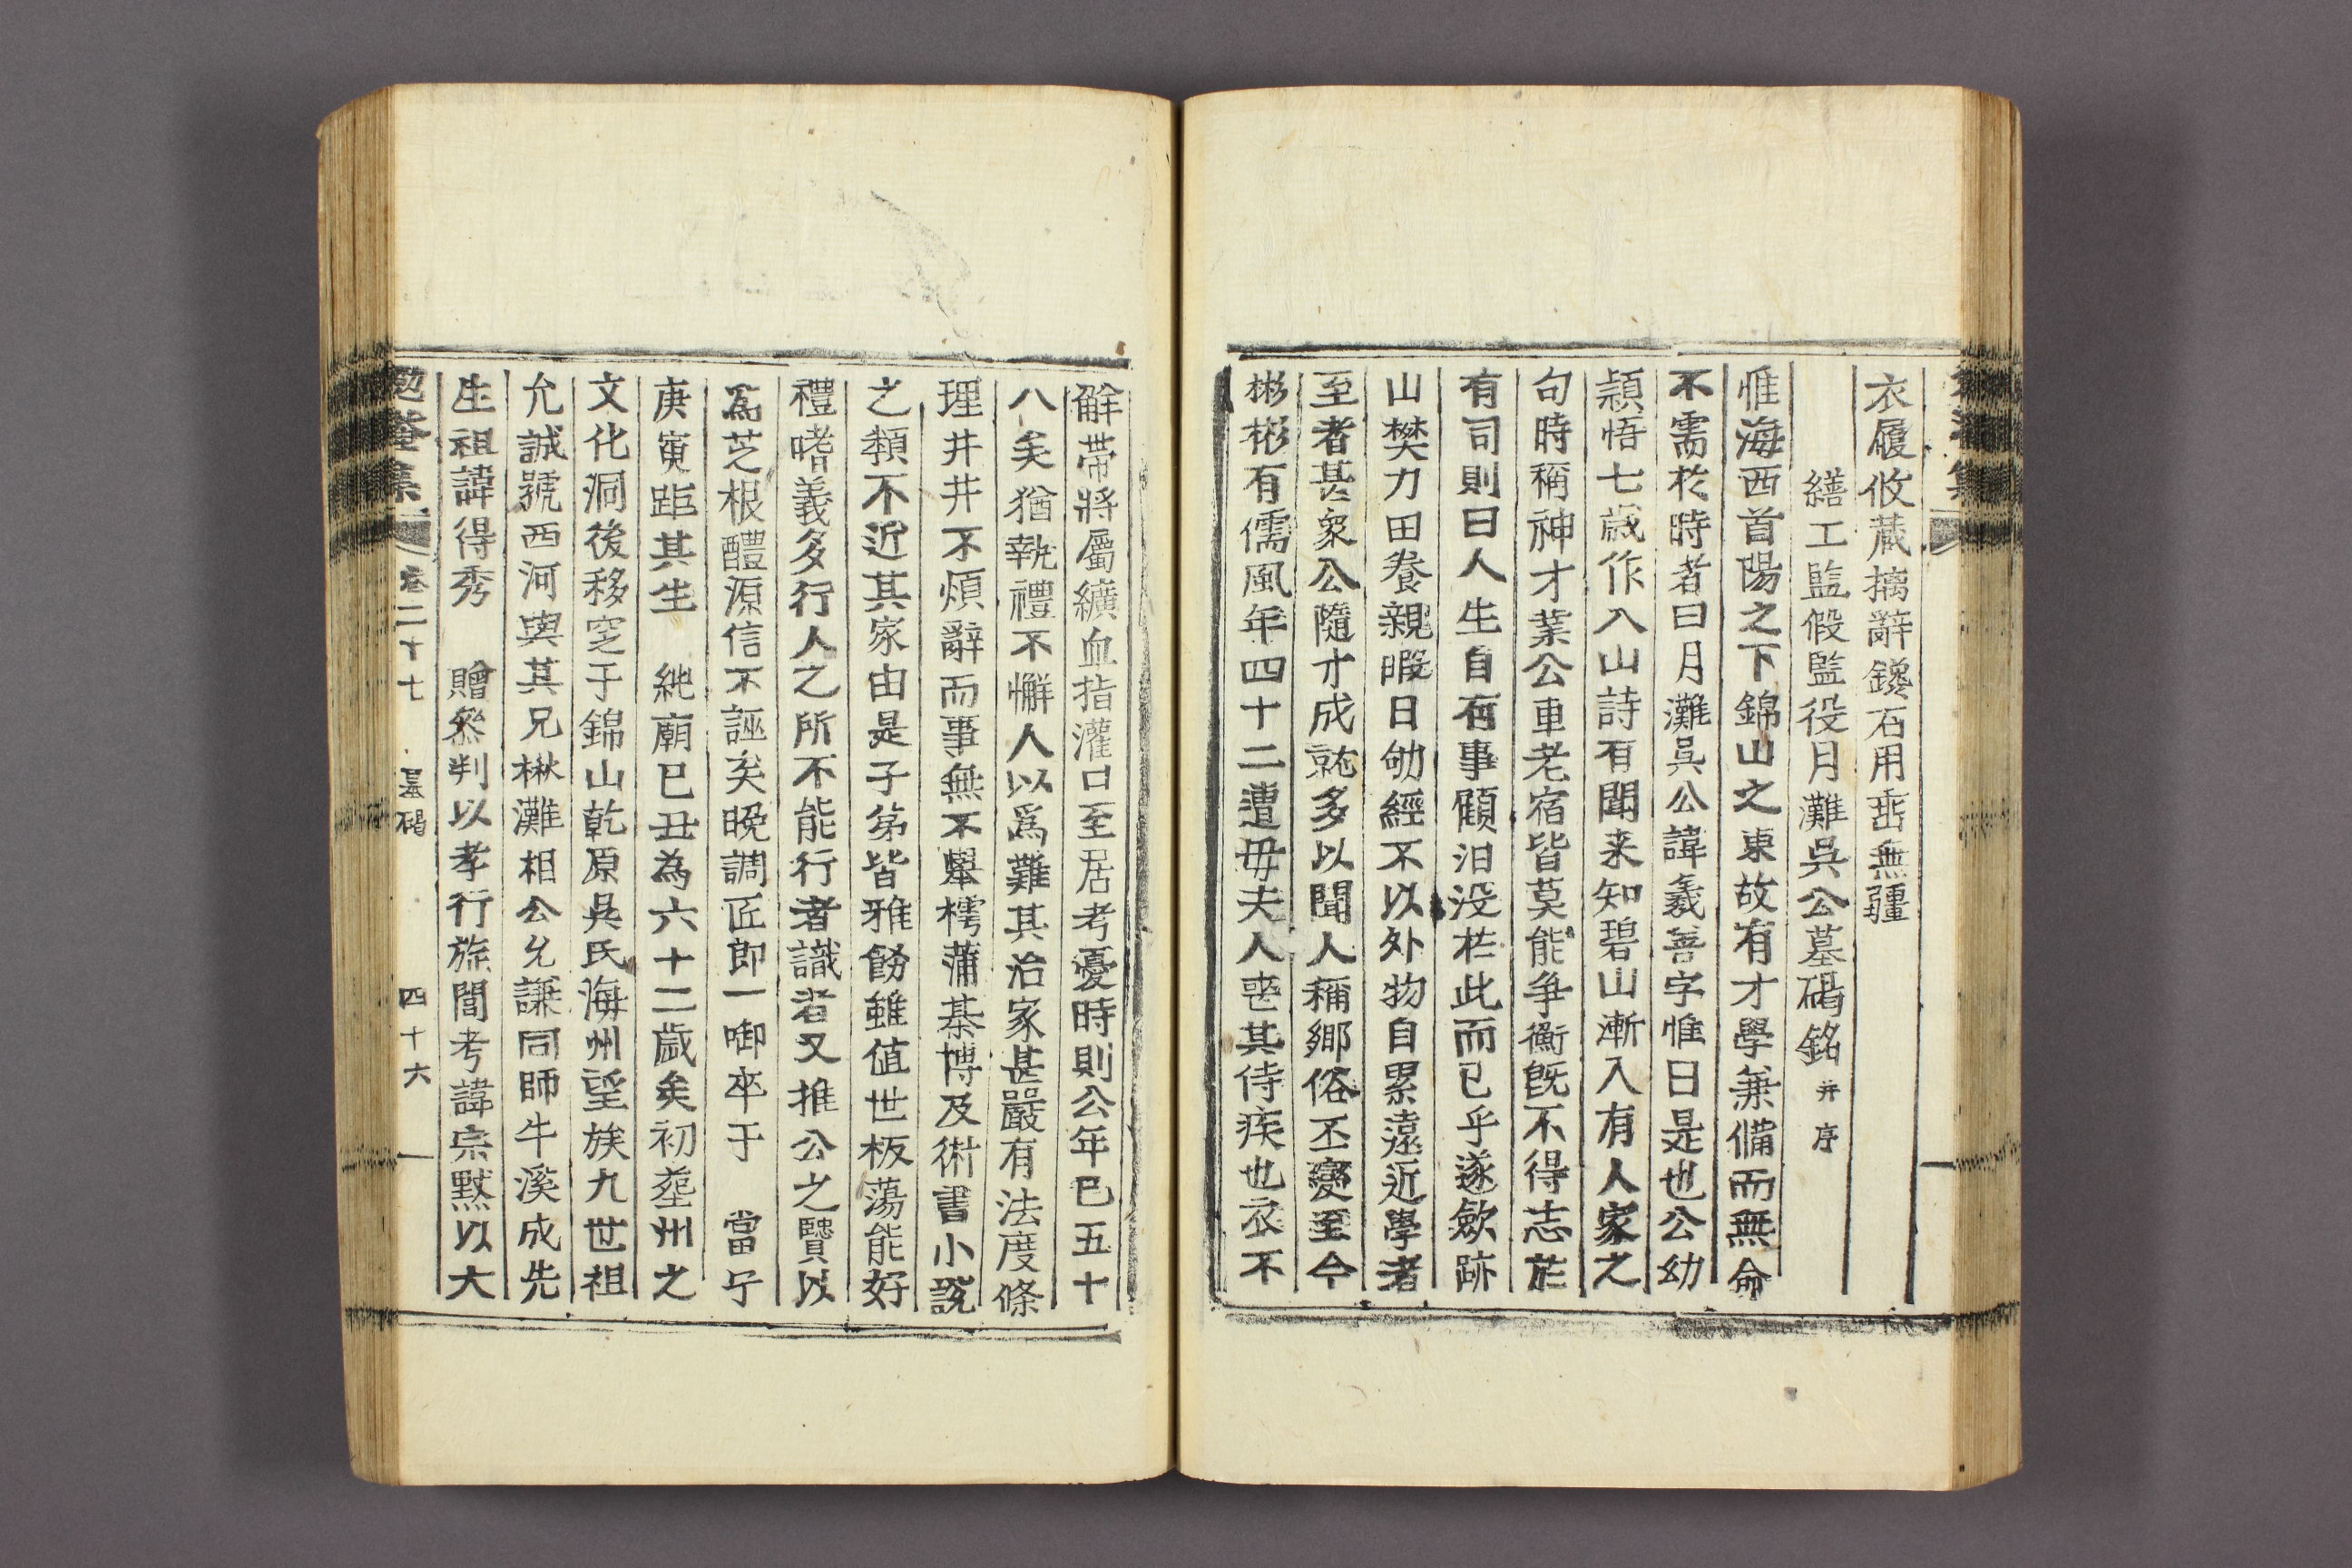 衣履攸蔵摛辭鑱石用垂無疆
繕工監假監役月灘吳公墓碣銘 并序
惟海西首陽之下錦山之東故有才學兼備而無命
不需於時者曰月灘吳公諱羲善字惟日是也公幼
穎悟七歲作入山詩有聞来知碧山漸入有人家之
句時稱神才業公車老宿皆莫能爭衡旣不得志於
有司則曰人生自有事顧汨没於此而已乎遂歛跡
山樊力田養親暇日劬經不以外物自累遠近學者
至者甚衆公隨才成就多以聞人稱鄕俗丕變至今
彬彬有儒風年四十二遭毋夫人喪其侍疾也衣不
觧帶將屬纊血指灌口至居考憂時則公年已五十
八矣猶執禮不懈人以爲難其治家甚嚴有法度條
理井井不煩辭而事無不擧樗蒲棊博及術書小說
之類不近其家由是子弟皆雅飭雖值世板蕩能好
禮嗜義多行人之所不能行者識者又推公之賢以
爲芝根醴源信不誣矣晩調匠郎一啣卒于 當宁
庚寅距其生 純廟已丑為六十二歲矣初塟州之
文化洞後移窆于錦山乾原吳氏海州望族九世祖
允誠號西河與其兄楸灘相公允謙同師牛溪成先
生祖諱得秀 贈叅判以孝行旌閭考諱宗默以大
勉菴集 卷二十七 墓碣 四十六